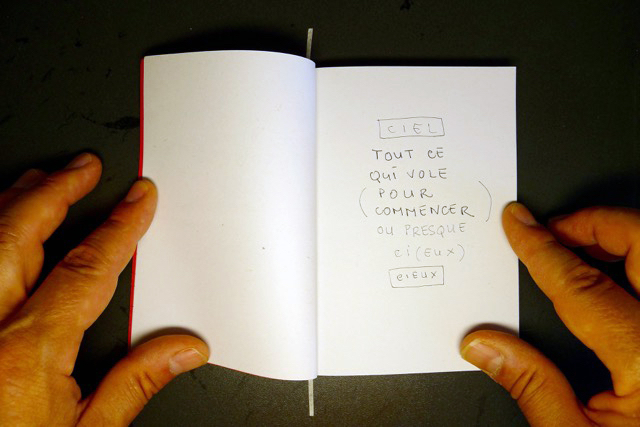 CIEL
TOUT CE
QUi VOLE
(POUR
COMMENCER)
OU PRESQUE
Ci(EUX)
CIEUX